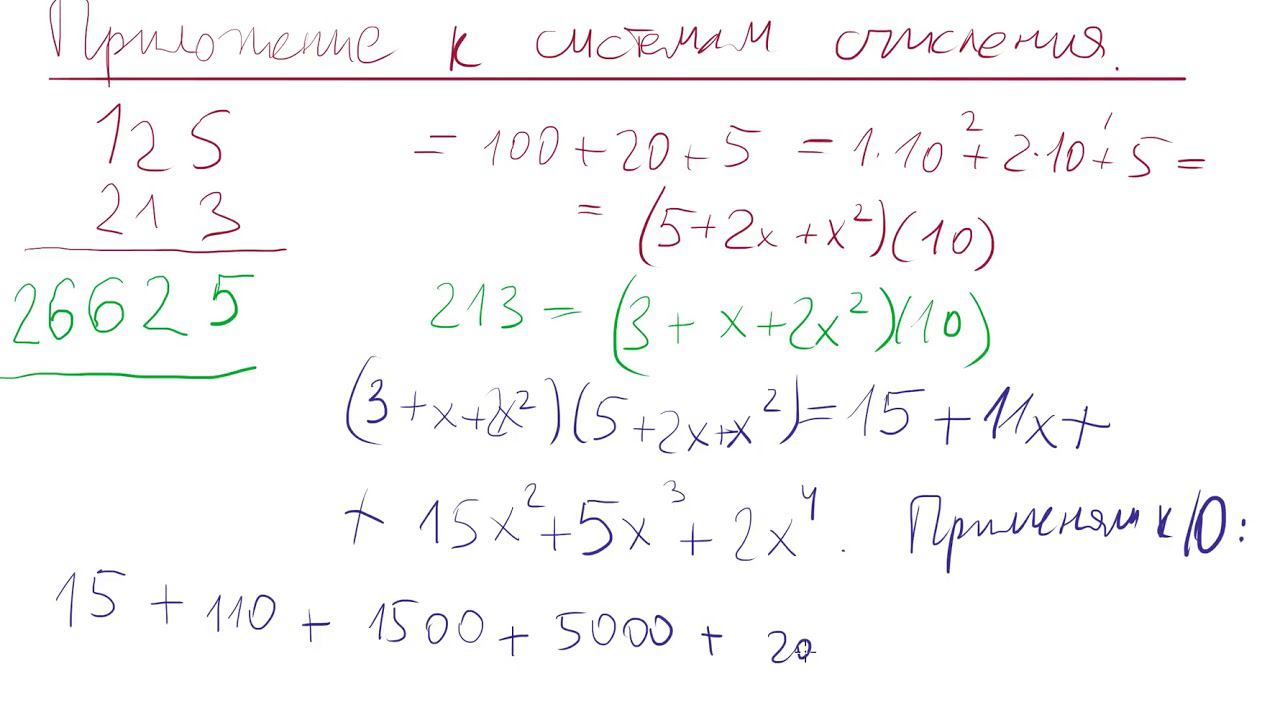 Приложение к системам счисления.
125 = 100 + 20 + 5 = 1·10² + 2·10¹ + 5 =
213 = (5+2x+x²)(10)
26625 213 = (3 + x + 2x²)(10)
(3+x+2x²)(5+2x+x²) = 15 + 11x +
+ 15x² + 5x³ + 2x⁴. Применяем к 10:
15 + 110 + 1500 + 5000 + 20